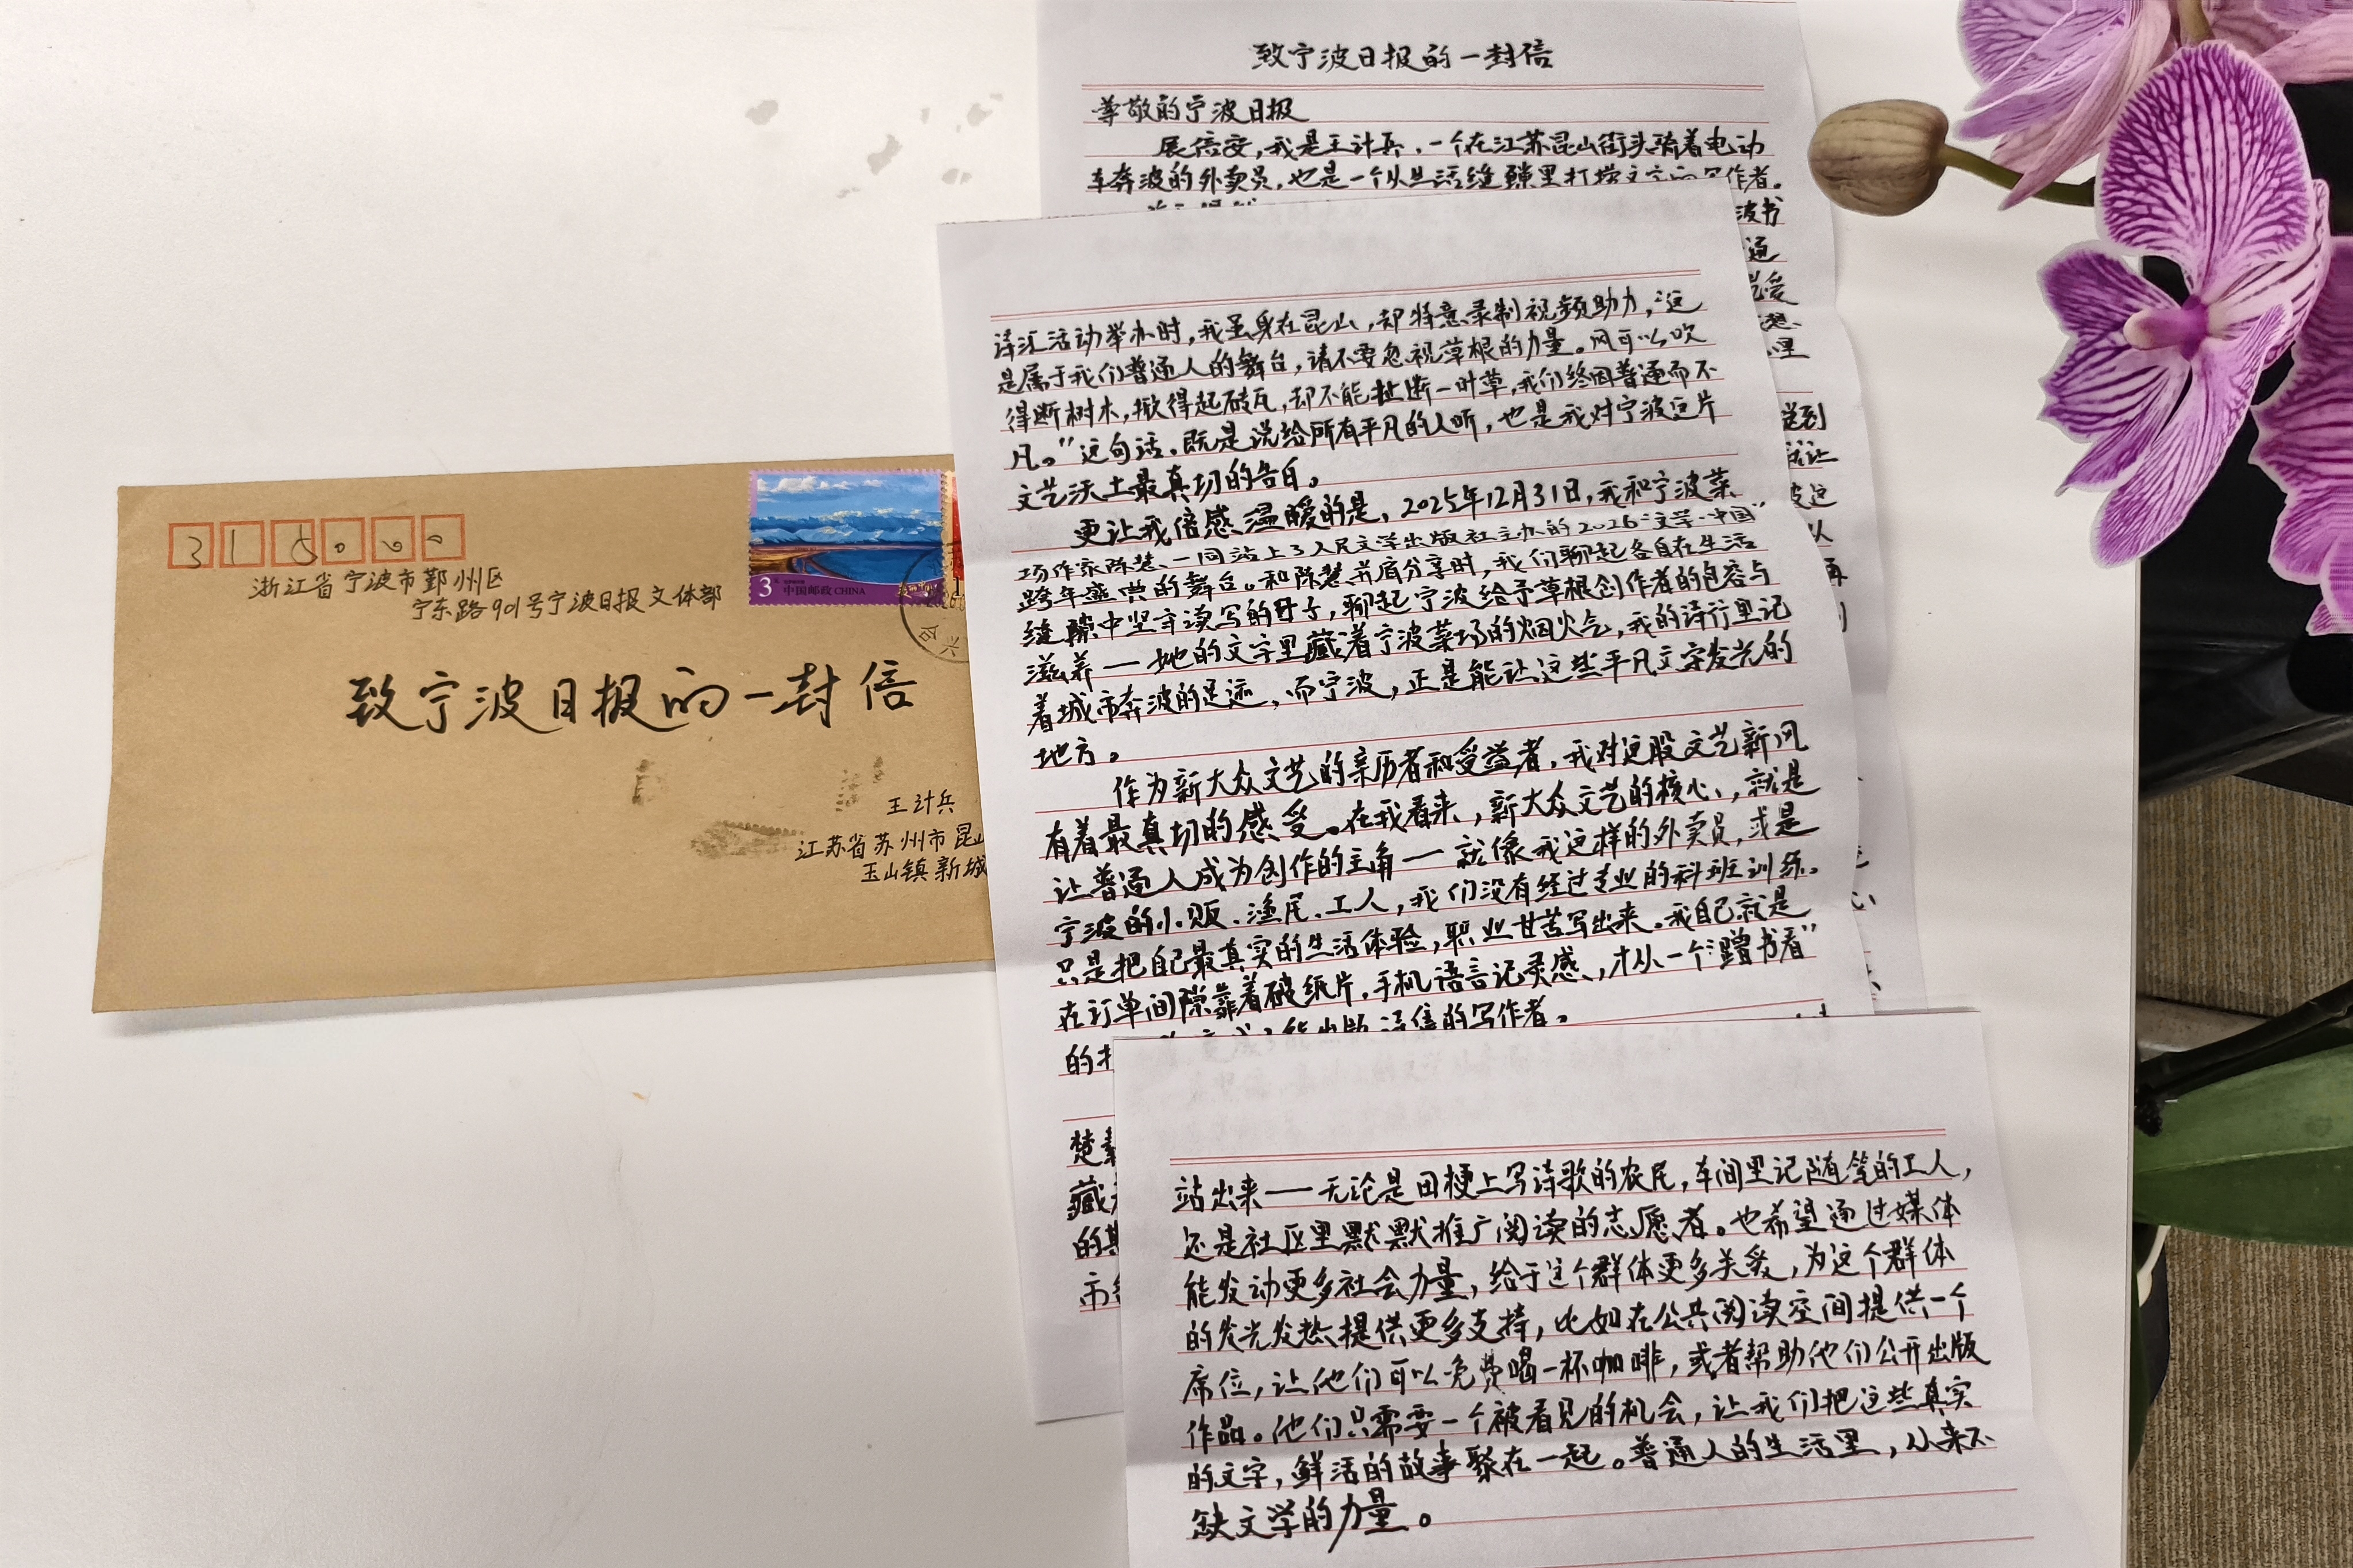 315000
浙江省宁波市鄞州区
宁东路901号宁波日报文体部
致宁波日报的一封信
王计兵
江苏省苏州市昆山
玉山镇新城
3元
中国邮政 CHINA
致宁波日报的一封信
尊敬的宁波日报
展信安，我是王计兵，一个在江苏昆山街头骑着电动
车奔波的外卖员，也是一个从生活缝隙里打捞文字的写作者。
波书
通
感受
里
送到
就让
被这
以
再
诗汇活动举办时，我虽身在昆山，却特意录制视频助力，“这
是属于我们普通人的舞台，请不要忽视草根的力量。风可以吹
得断树木，掀得起砖瓦，却不能扯断一叶草，我们终因普通而不
凡。”这句话，既是说给所有平凡的人听，也是我对宁波这片
文艺沃土最真切的告白。
更让我倍感温暖的是，2025年12月31日，我和宁波菜
场作家陈慧，一同站上了人民文学出版社主办的2026“文学·中国”
跨年盛典的舞台。和陈慧并肩分享时，我们聊起各自在生活
缝隙中坚守读写的日子，聊起宁波给予草根创作者的包容与
滋养——她的文字里藏着宁波菜场的烟火气，我的诗行里记
着城市奔波的足迹，而宁波，正是能让这些平凡文字发光的
地方。
作为新大众文艺的亲历者和受益者，我对这股文艺新风
有着最真切的感受。在我看来，新大众文艺的核心，就是
让普通人成为创作的主角——就像我这样的外卖员，或是
宁波的小贩、渔民、工人，我们没有经过专业的科班训练。
只是把自己最真实的生活体验，职业甘苦写出来。我自己就是
在订单间隙靠着破纸片，手机语言记灵感，才从一个“蹭书看”
的
能出版诗集的写作者。
楚
藏
的
市
站出来——无论是田梗上写诗歌的农民，车间里记随笔的工人，
还是社区里默默推广阅读的志愿者。也希望通过媒体
能发动更多社会力量，给于这个群体更多关爱，为这个群体
的发光发热提供更多支持，比如在公共阅读空间提供一个
席位，让他们可以免费喝一杯咖啡，或者帮助他们公开出版
作品。他们只需要一个被看见的机会，让我们把这些真实
的文字，鲜活的故事聚在一起。普通人的生活里，从来不
缺文学的力量。